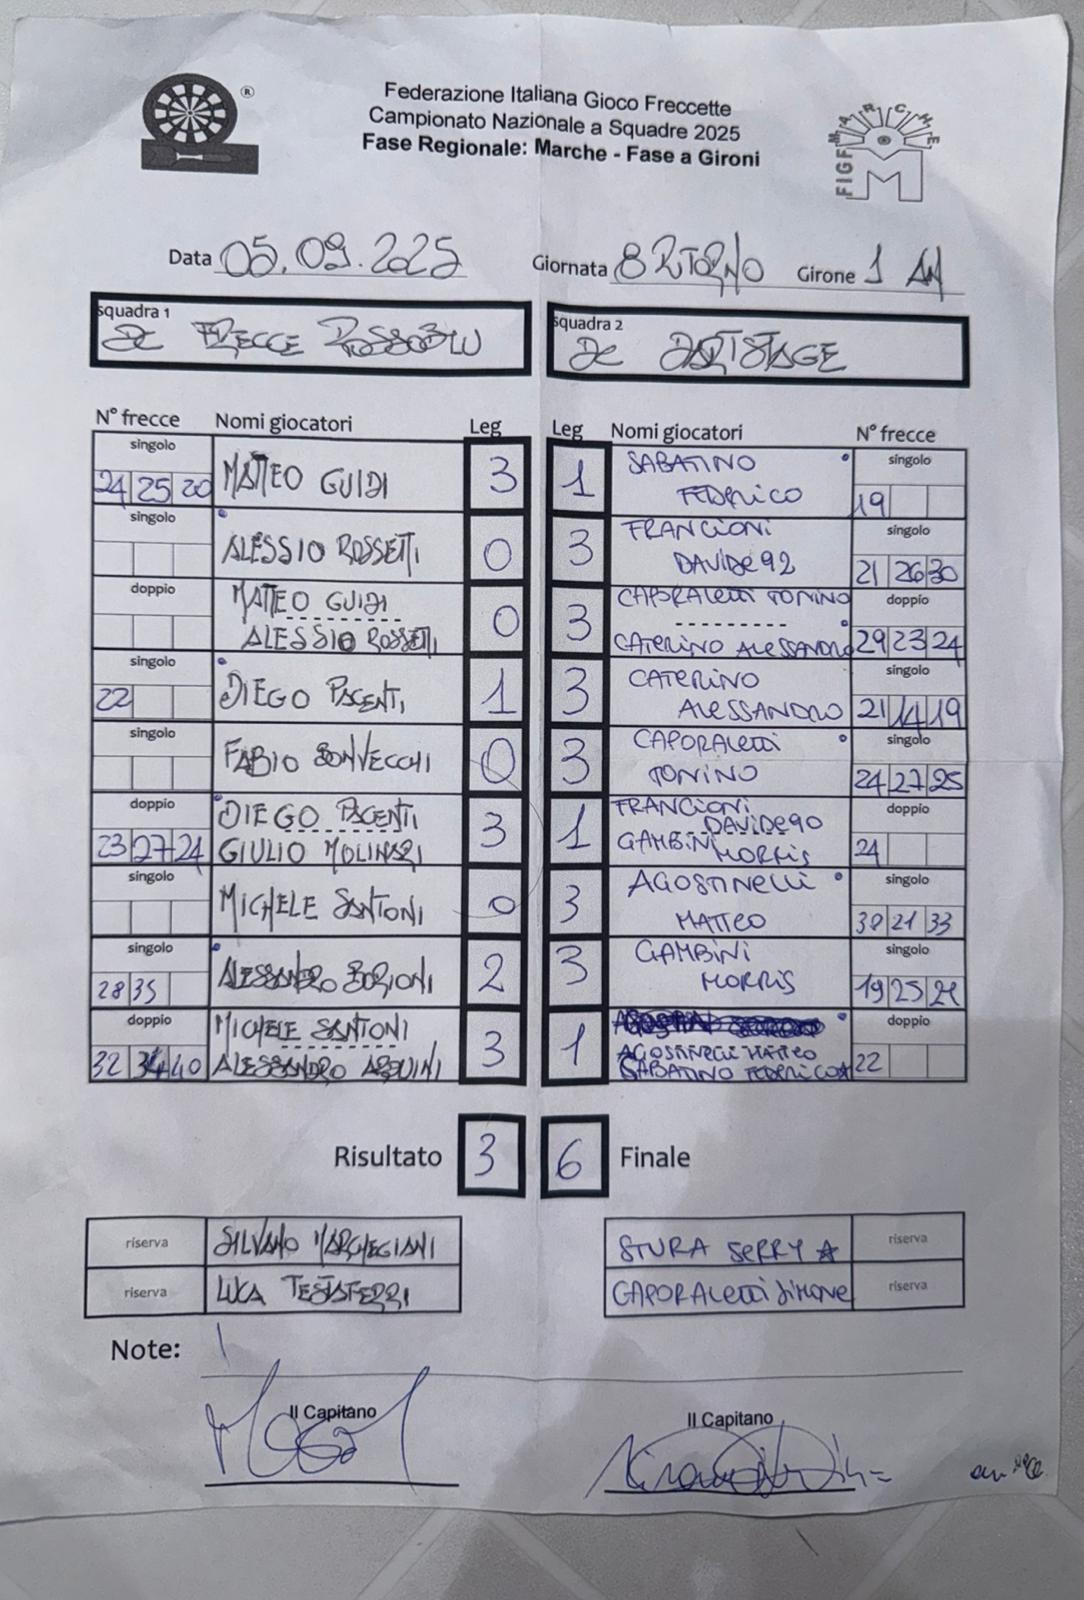 ®
Federazione Italiana Gioco Freccette
Campionato Nazionale a Squadre 2025
Fase Regionale: Marche - Fase a Gironi
FIGF MARCHE
M
Data 05.09.2025 Giornata 8 RITORNO Girone 1 AN
squadra 1
DC FRECCE ROSSOBLU
squadra 2
DC DARTSTAGE
N° frecce Nomi giocatori Leg Leg Nomi giocatori N° frecce
singolo 24 25 20 MATTEO GUIDI 3 1 SABATINO singolo
FEDERICO 19
singolo ALESSIO ROSSETTI 0 3 FRANCIONI singolo
DAVIDE 92 21 26 30
doppio MATTEO GUIDI 0 3 CAPORALETTI TONINO doppio
ALESSIO ROSSETTI CATERINO ALESSANDRO 29 23 24
singolo 22 DIEGO PACENTI 1 3 CATERINO singolo
ALESSANDRO 21 14 19
singolo FABIO BONVECCHI 0 3 CAPORALETTI singolo
TONINO 24 27 25
doppio DIEGO PACENTI 3 1 FRANCIONI DAVIDE 90 doppio
23 27 24 GIULIO MOLINARI GAMBINI MORRIS 24
singolo MICHELE SANTONI 0 3 AGOSTINELLI singolo
MATTEO 38 21 33
singolo 28 35 ALESSANDRO BORIONI 2 3 GAMBINI singolo
MORRIS 19 25 21
doppio MICHELE SANTONI 3 1 AGOSTINELLI MATTEO doppio
32 34 40 ALESSANDRO SABATINO FEDERICO 22
Risultato 3 6 Finale
riserva SILVANO MARCHEGIANI STURA SERRY riserva
riserva LUCA TESTAFERRI CAPORALETTI SIMONE riserva
Note:
Il Capitano Il Capitano